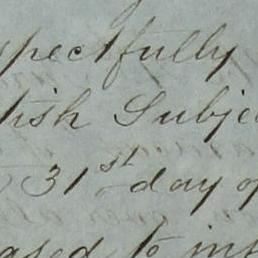 spectfully
tish Subjec
31st day of
eased to inf